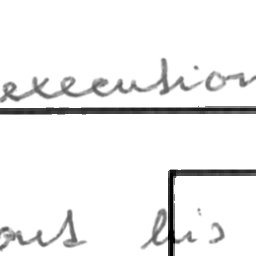 execution
out his